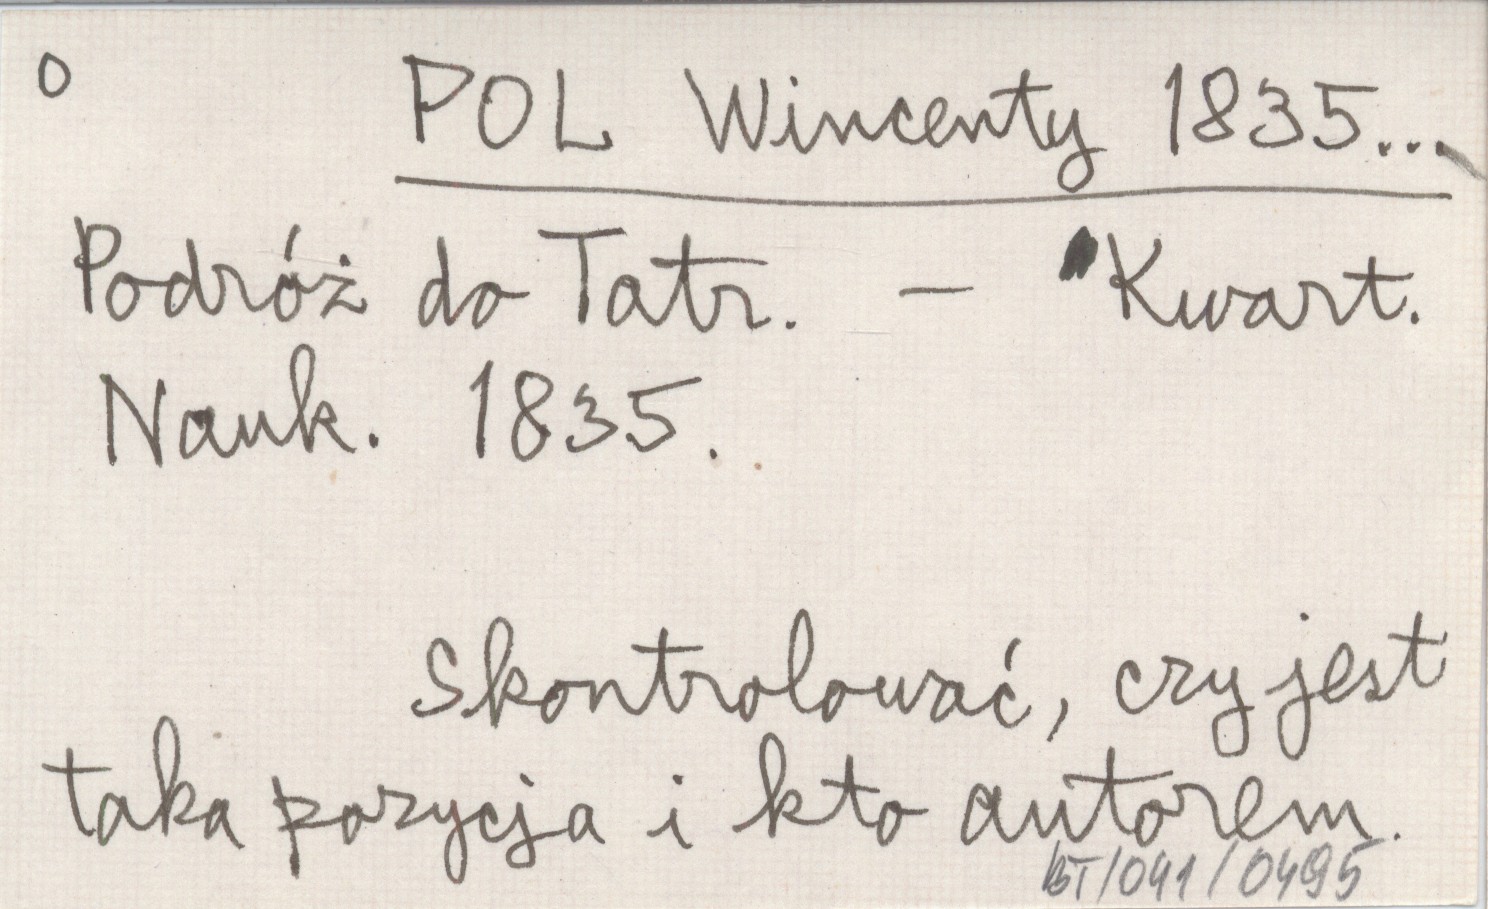 o POL Wincenty 1835...
Podróż do Tatr. — Kwart.
Nauk. 1835.
Skontrolować, czy jest
taka pozycja i kto autorem.
BT/041/0495